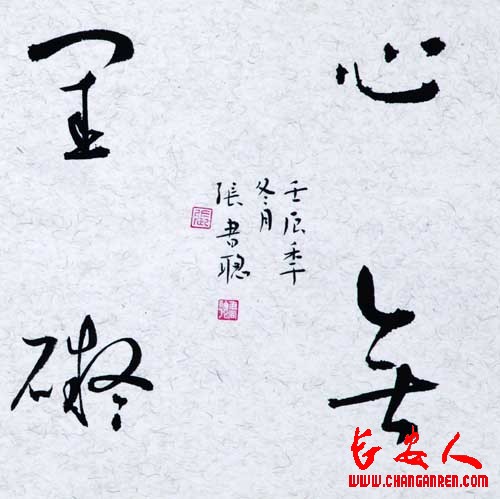 心無
罣礙
壬辰年
冬月
張書聰
长安人
WWW.CHANGANREN.COM